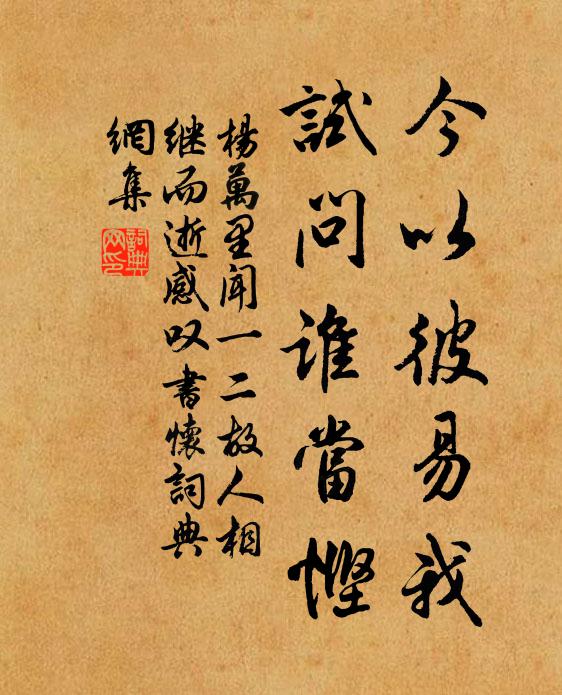 今以彼易我
試問誰當慳
楊萬里聞一二故人相
继而逝感叹書懷詞典
網集
詞典
网印